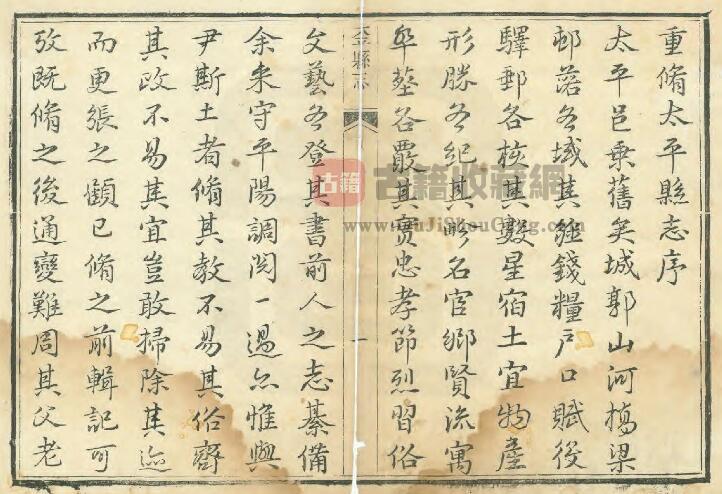 重脩太平縣志序
太平邑乗舊矣城郭山河橋梁
邨落各域其錢糧戶口賦役
驛郵各核其數星宿土宜物産
形勝各紀其名宦鄉賢流寓
各覈其實忠孝節烈習俗
文藝各登其書前人之志綦備
余来守平陽調閲一過亦惟與
尹斯土者脩其教不易其俗齊
其政不易其宜豈敢掃除其迹
而更張之顧已脩之前輯記可
攷既脩之後通變難周其父老
縣志
一
古籍
古籍收藏網
www.GuJiShouCang.com